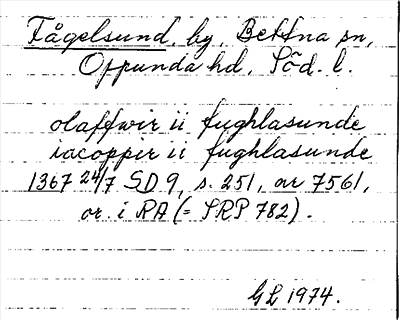 Fågelsund, by, Bettna sn,
Oppunda hd, Söd. l.
olaffwir ii fughlasunde
iacoppir ii fughlasunde
1367 24/7 SD 9, s. 251, nr 7561,
or. i RA (= SRP 782).
GL 1974.